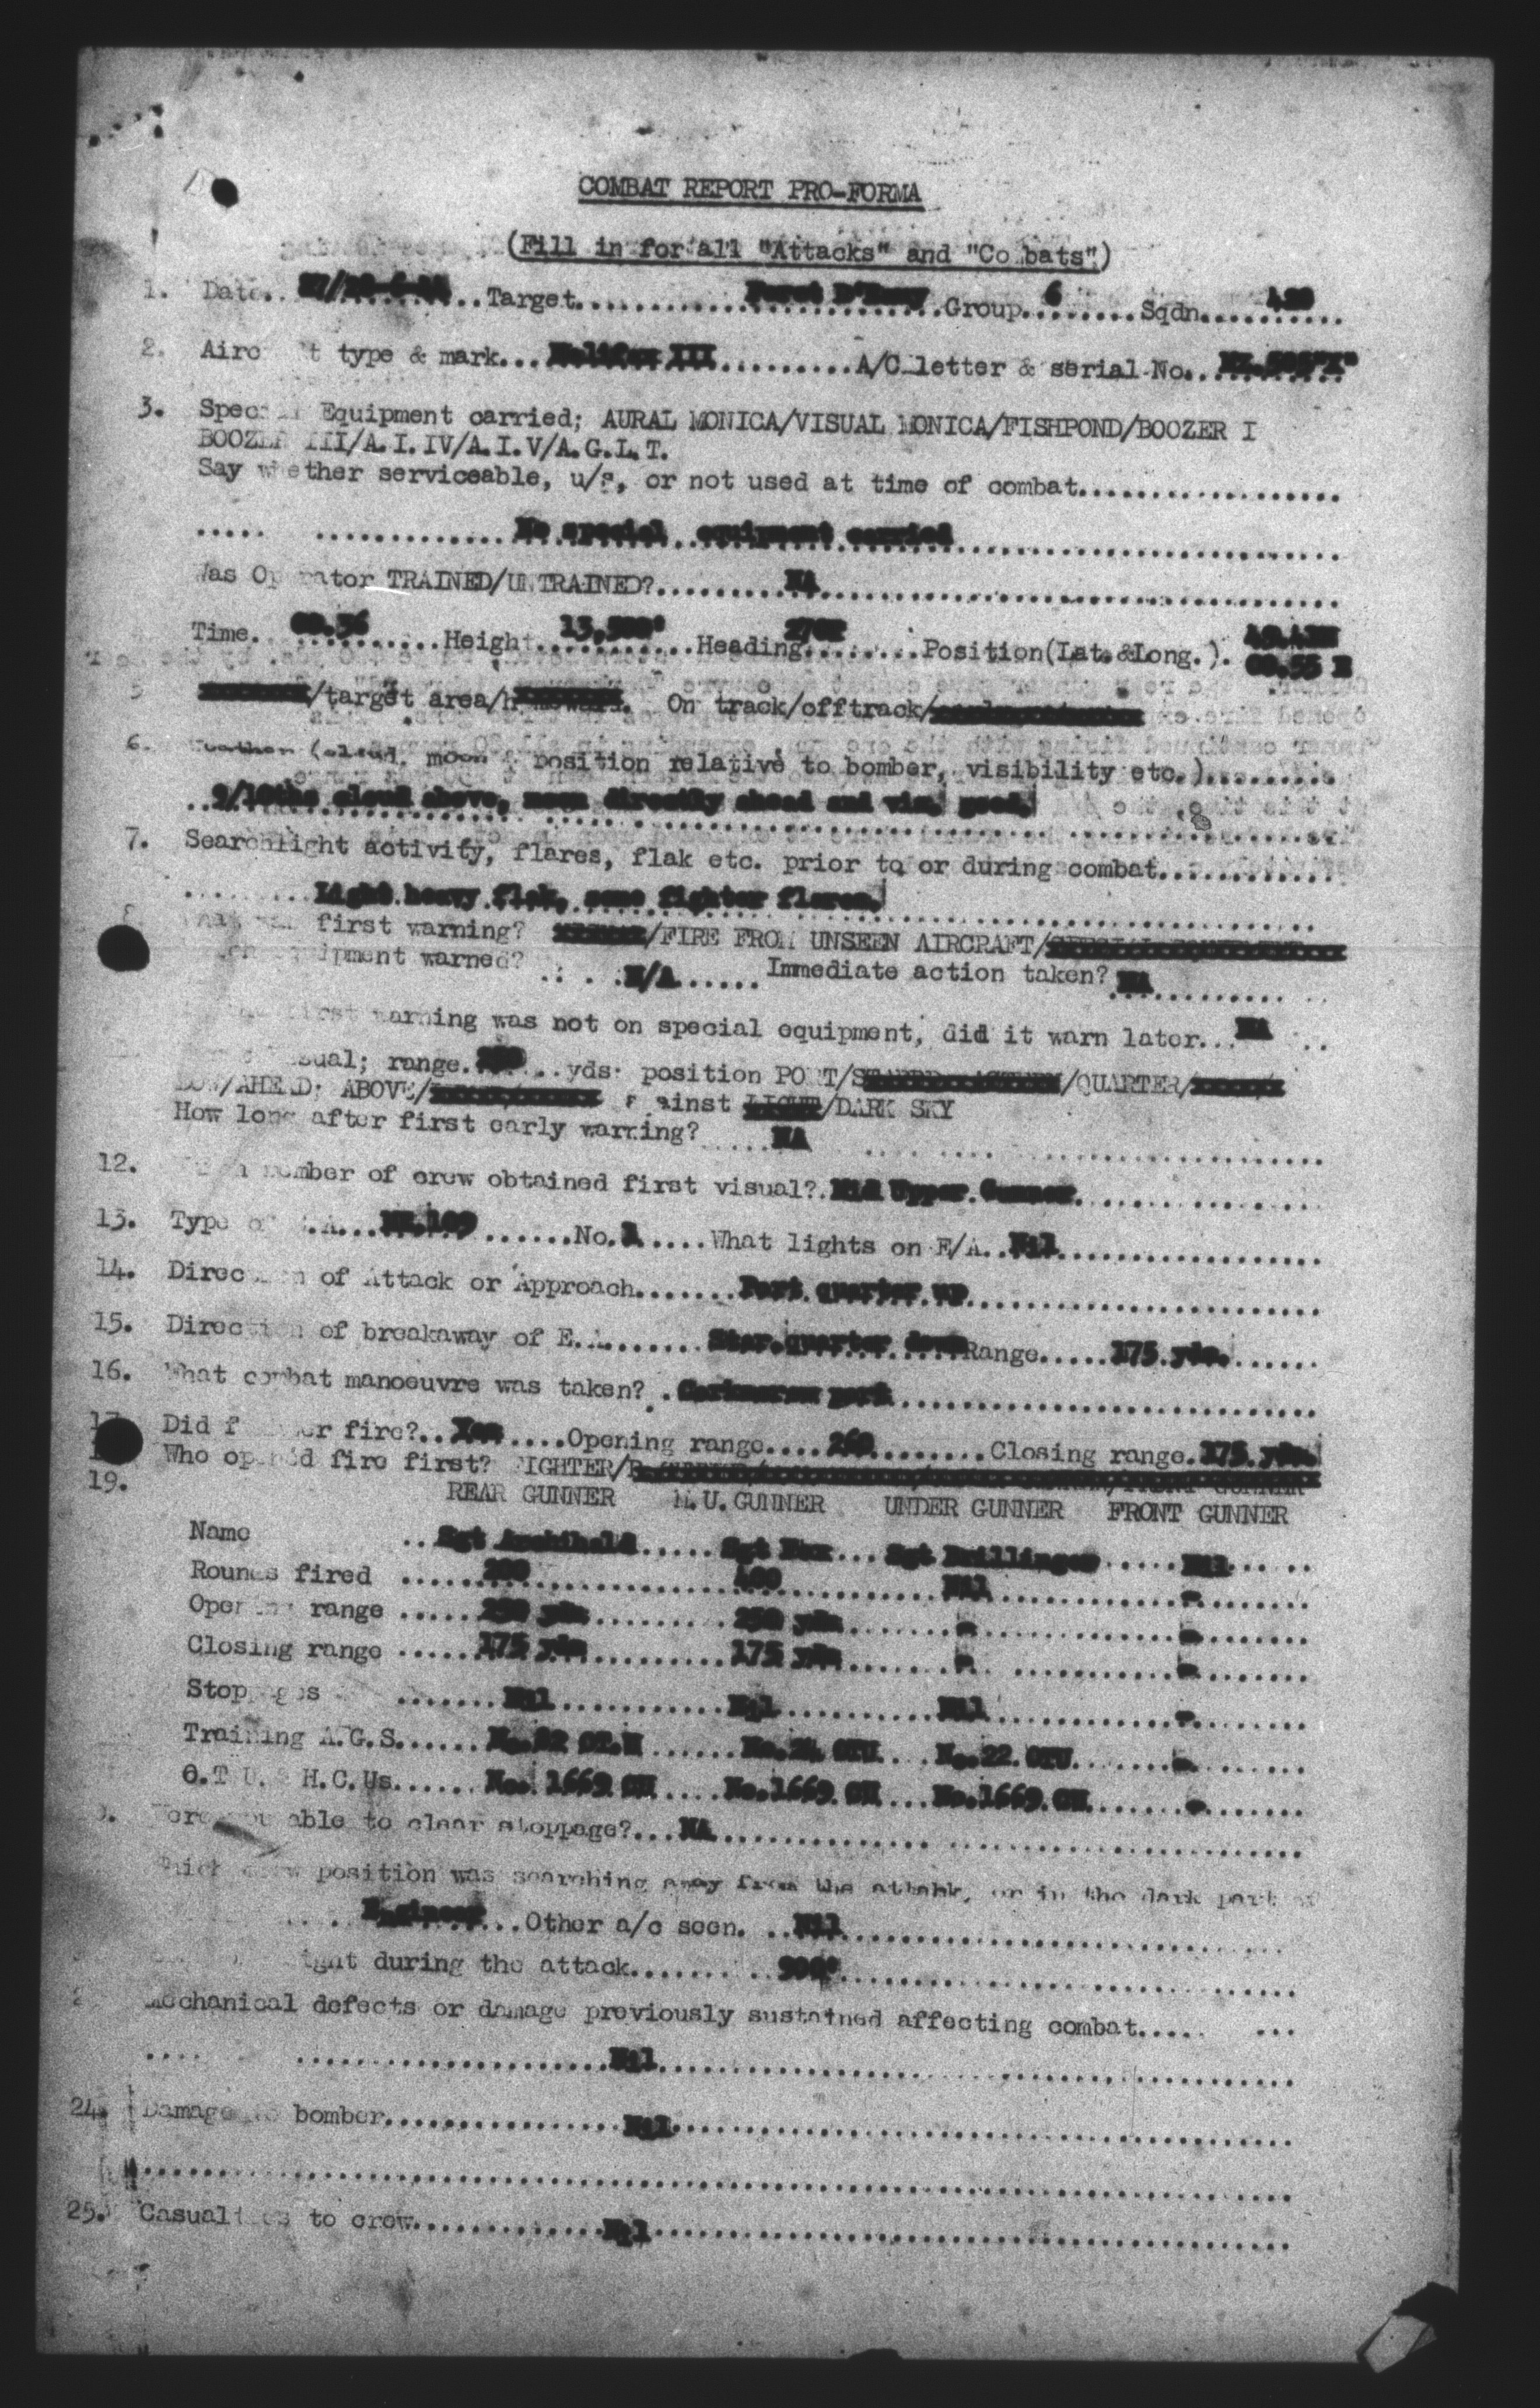 COMBAT REPORT PRO-FORMA
(Fill in for all "Attacks" and "Co bats")
1. Date.. ..Target.......... Group 6 Sqdn..........
2. Airc t type & mark...Halifax III.........A/C letter & serial No..
3. Spec Equipment carried; AURAL MONICA/VISUAL MONICA/FISHPOND/BOOZER I
BOOZER III/A.I.IV/A.I.V/A.G.L.T.
Say whether serviceable, u/s, or not used at time of combat..................
No special equipment carried
Was Operator TRAINED/UNTRAINED?..........NA
Time. 00.36 Height 13,500' Heading Position(Lat.&Long.).
00.55 E
5 /target area/homeward. On track/offtrack/
6. Weather (cloud, moon & position relative to bomber, visibility etc.).........
9/10ths cloud above, moon directly ahead and vis. good.
7. Searchlight activity, flares, flak etc. prior to or during combat.............
Light heavy flak, some fighter flares.
first warning? /FIRE FROM UNSEEN AIRCRAFT/
ipment warned? ... N/A...... Immediate action taken? NA
first warning was not on special equipment, did it warn later...NA
visual; range. ...yds. position PORT/ /QUARTER/
LOW/AHEAD; ABOVE/ against /DARK SKY
How long after first early warning? .....NA
12. member of crew obtained first visual?.Mid Upper Gunner.
13. Type of .A...ME.109......No.1.....What lights on E/A..Nil
14. Direction of Attack or Approach.......Port quarter up
15. Direction of breakaway of E.A.......Star.quarter down Range.....175 yds.
16. What combat manoeuvre was taken?..Corkscrew port
17 Did f r fire?..Yes....Opening range....260.........Closing range.175 yds
Who opened fire first? FIGHTER/
19. REAR GUNNER M.U.GUNNER UNDER GUNNER FRONT GUNNER
Name ..Sgt Archibald.....Sgt Fox...Sgt Brillinger.....Nil
Rounds fired ......200 400 Nil -
Opening range .....250 yds 250 yds - -
Closing range .....175 yds 175 yds - -
Stoppages .......Nil Nil Nil -
Training A.G.S......No.22 OT.U ......No.24 OTU....No.22.OTU -
O.T.U. & H.C.Us......No.1669.CU....No.1669.CU...No.1669.CU -
Were you able to clear stoppage?...NA
Which crew position was searching away from the attack, or in the dark part of
Engineer...Other a/c seen. ..Nil
ight during the attack.......900'
Mechanical defects or damage previously sustained affecting combat.....
Nil
24. Damage to bomber...............Nil
25. Casualties to crew.............Nil